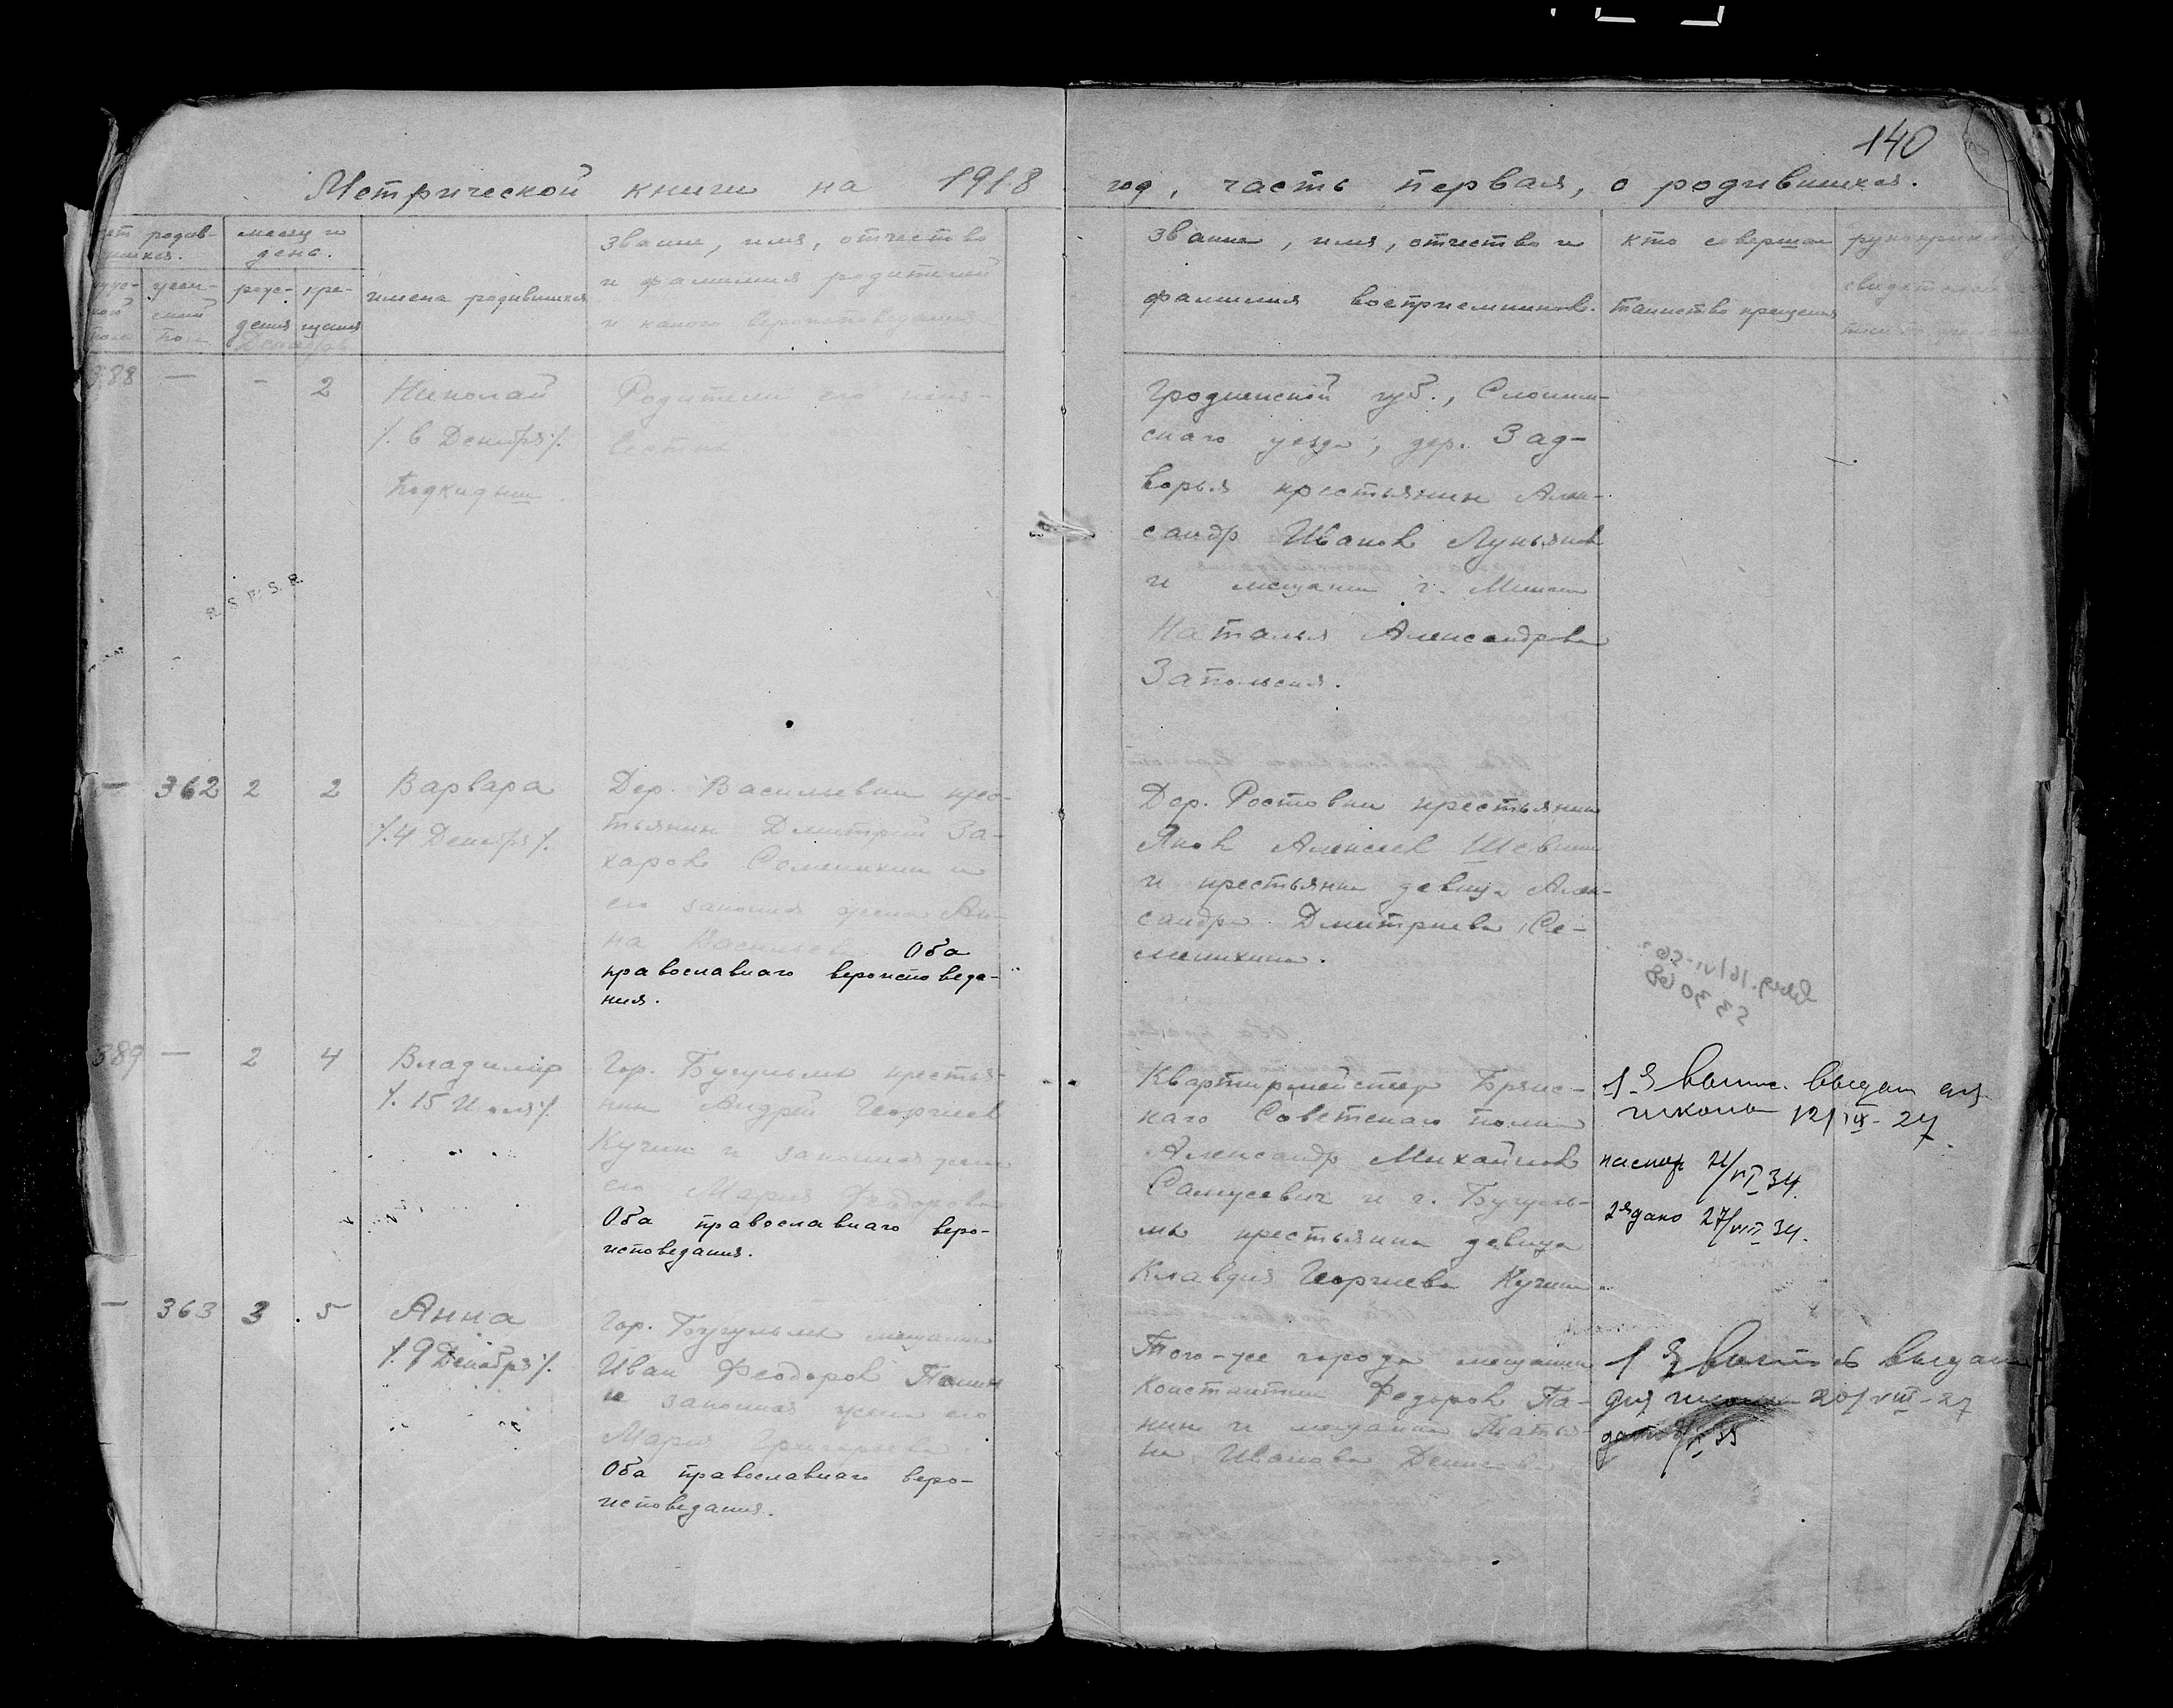 140
Метрической книги на 1918 год, часть первая, о родившихся.
месяц и день.
имена родившихся
звание, имя, отчество
и фамилия родителей
и какого вероисповедания
звание, имя, отчество и
фамилия восприемников.
кто совершал
таинство крещения
388 — - 2
Николай
/. 6 Декабря /.
Подкидыш.
Родители его неиз-
вестны
Гродненской губ., Слоним-
скаго уезда, дер. Зад-
ворья крестьянин Алек-
сандр Иванов Лукьянов
и мещанка г. Минска
Наталья Александрова
Запольская.
R. S. F. S. R.
— 362 2 2
Варвара
/. 4 Декабря /.
Дер. Васильевки крес-
тьянин Дмитрий За-
харов Семенихин и
его законная жена Ан-
на Васильева Оба
православнаго вероисповеда-
ния.
Дер. Ростовки крестьянин
Яков Алексеев
и крестьянка девица Алек-
сандра Дмитриева Се-
менихина.
389 — 2 4
Владимир
/. 15 Июля /.
Гор. Бугульмы крестья-
нин Андрей Георгиев
Кучин и законная жена
его Мария Феодорова
Оба православнаго веро-
исповедания.
Квартирмейстер Брянс-
каго Советскаго полка
Александр Михайлов
Самусевич и г. Бугуль-
мы крестьянка девица
Клавдия Георгиева Кучина.
1-я выпис. выдан для
школы 12/IX-27
паспор 21/VI 34.
2я дано 27/VIII 34.
— 363 3 5
Анна
/. 9 Декабря /.
Гор. Бугульмы мещанин
Иван Феодоров Панин
и законная жена его
Мария Григорьева
Оба православнаго веро-
исповедания.
Того-же города мещанин
Константин Федоров Па-
нин и мещанка Татья-
на Иванова
1 я выпись выдана
для школы 20/VIII-27